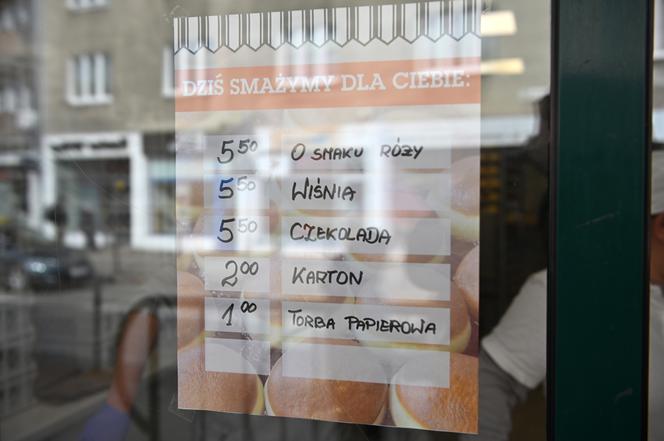 DZIŚ SMAŻYMY DLA CIEBIE:
5 50 O SMAKU RÓŻY
5 50 WIŚNIA
5 50 CZEKOLADA
2 00 KARTON
1 00 TORBA PAPIEROWA